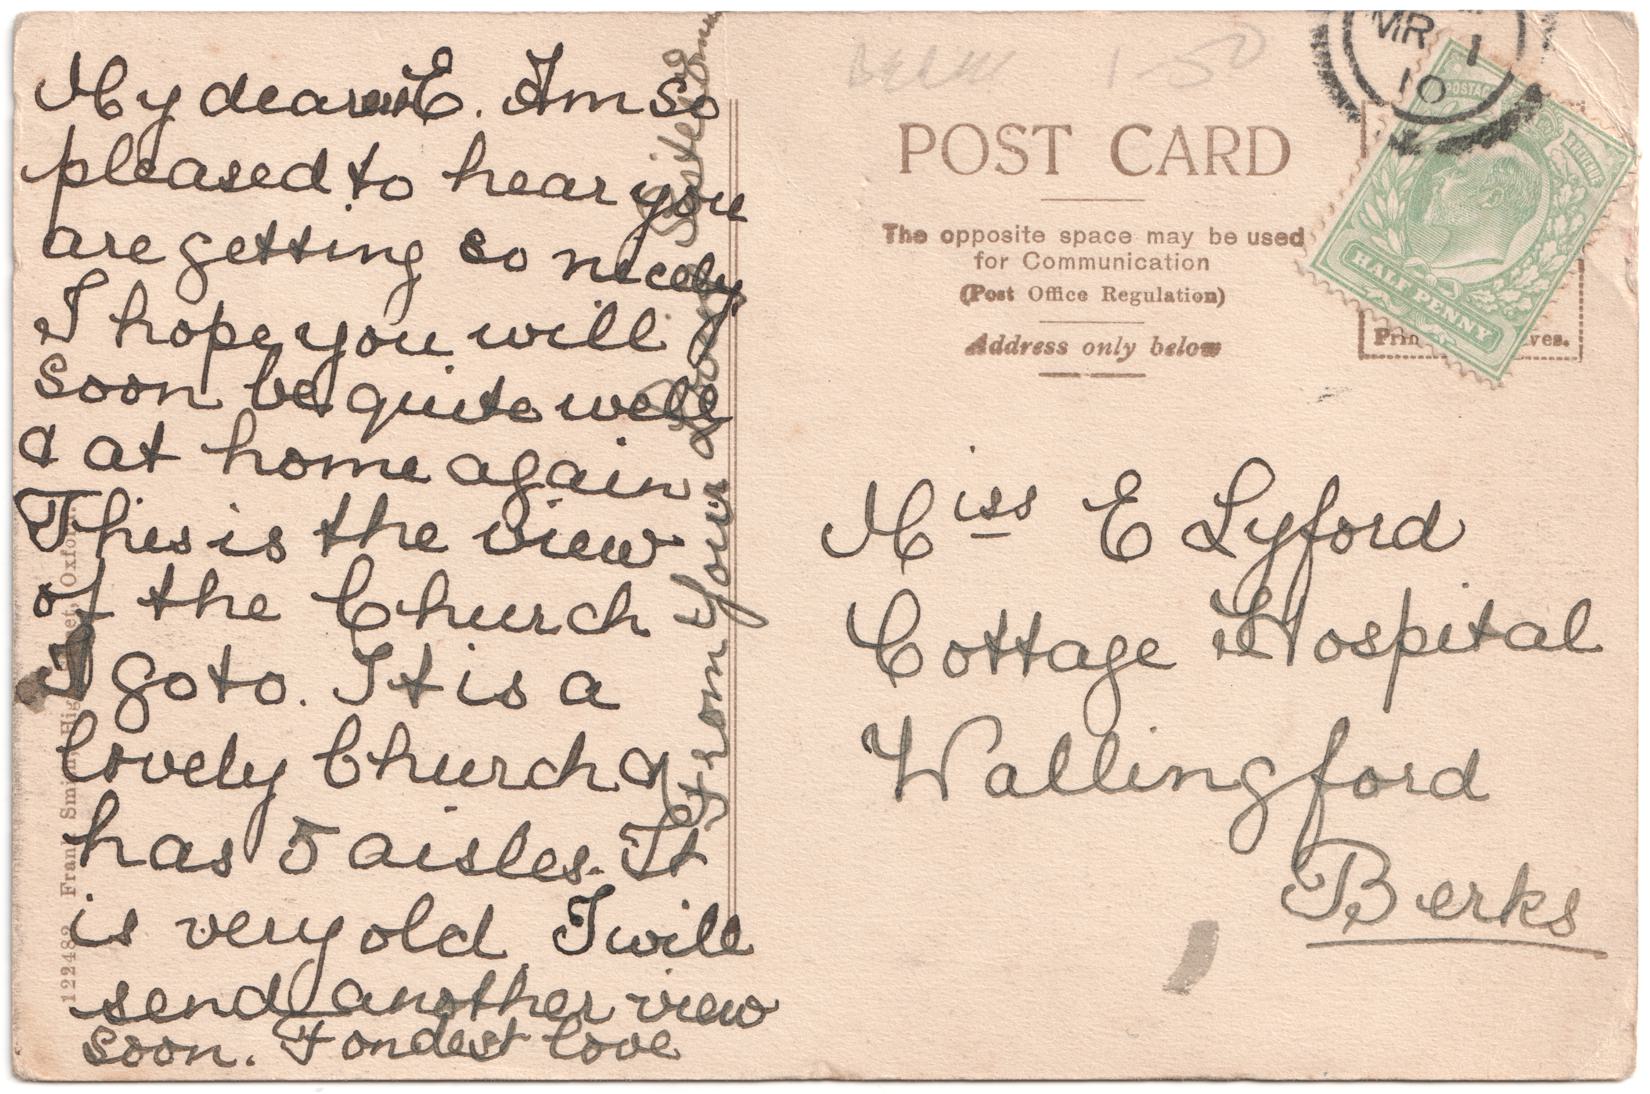 My dear E. Am so
pleased to hear you
are getting so nicely
I hope you will
soon be quite well
& at home again
This is the view
of the Church
I go to. It is a
lovely Church &
has 5 aisles. It
is very old I will
send another view
soon. Fondest love
from Your loving Sister
122482 Frank Smith, High Street, Oxford.
BERKS 1-50
POST CARD
The opposite space may be used
for Communication
(Post Office Regulation)
Address only below
MR 1
10
POSTAGE
REVENUE
HALF PENNY
Miss E Lyford
Cottage Hospital
Wallingford
Berks